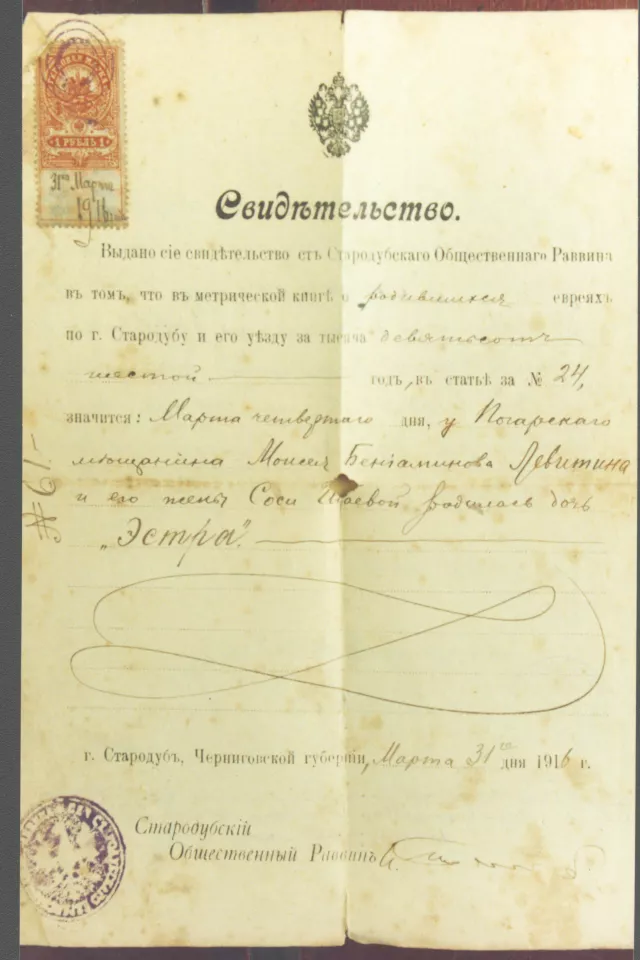 1 РУБЛЬ 1
31го Марта
1916
Свидѣтельство.
Выдано сіе свидѣтельство отъ Стародубскаго Общественнаго Раввина
въ томъ, что въ метрической книгѣ о родившихся евреяхъ
по г. Стародубу и его уѣзду за тысяча девятьсотъ
шестой годъ, въ статьѣ за № 24,
значится: Марта четвертаго дня, у Погарскаго
мѣщанина Моисея Беніаминова Левитина
и его жены Соси родилась дочь
„Эстра".
№ 61-
г. Стародубъ, Черниговской губерніи, Марта 31го дня 1916 г.
Стародубскій
Общественный Раввинъ